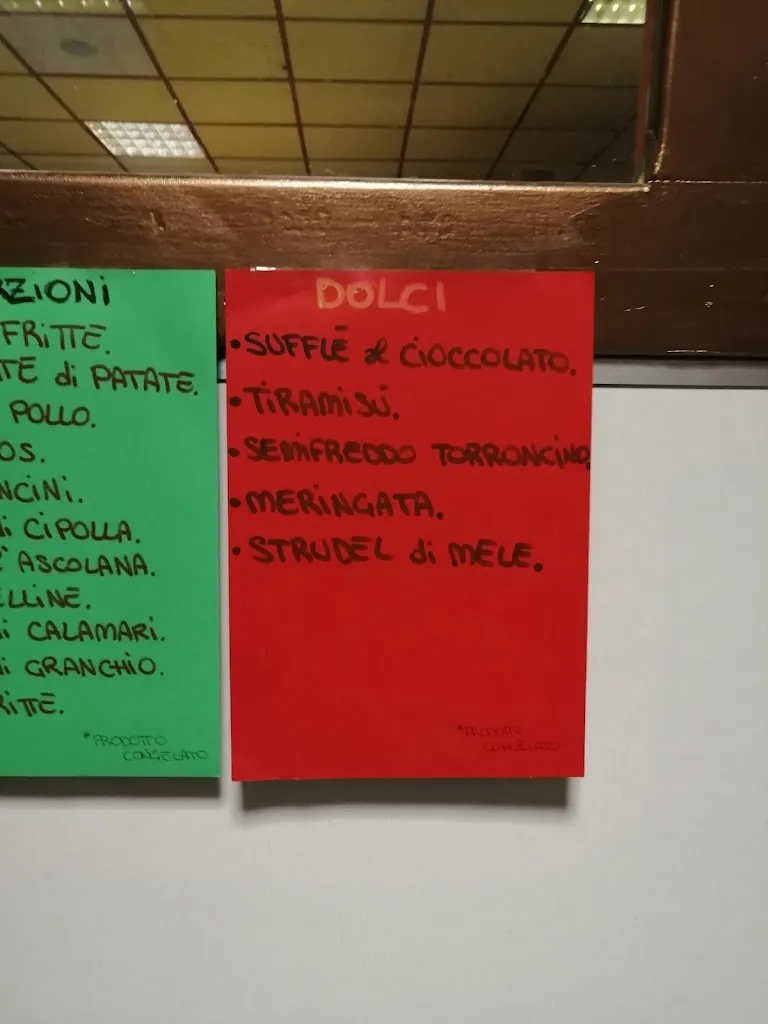 RZIONI
FRITTE.
TE di PATATE.
POLLO.
OS.
NCINI.
i CIPOLLA.
ASCOLANA.
ELLINE.
i CALAMARI.
i GRANCHIO.
RITTE.
*PRODOTTO
CONGELATO
DOLCI
•SUFFLÉ al CIOCCOLATO.
•TIRAMISÚ.
•SEMIFREDDO TORRONCINO.
•MERINGATA.
•STRUDEL di MELE.
*PRODOTTO
CONGELATO